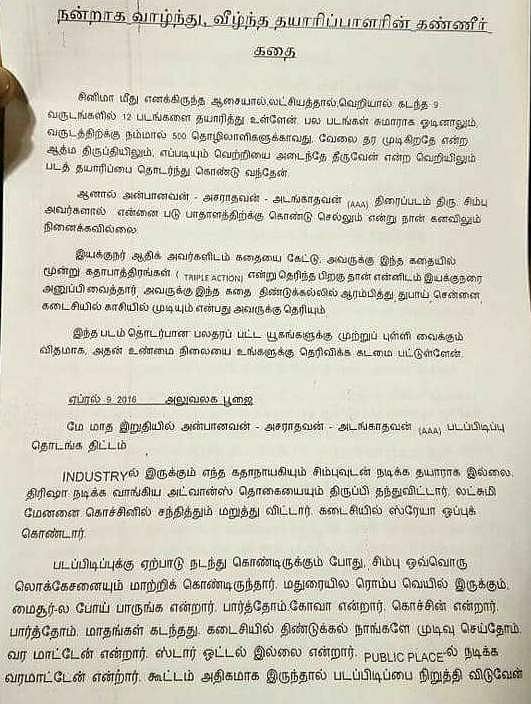 நன்றாக வாழ்ந்து, வீழ்ந்த தயாரிப்பாளரின் கண்ணீர்
கதை
சினிமா மீது எனக்கிருந்த ஆசையால்,லட்சியத்தால்,வெறியால் கடந்த 9
வருடங்களில் 12 படங்களை தயாரித்து உள்ளேன். பல படங்கள் சுமாராக ஓடினாலும்,
வருடத்திற்க்கு நம்மால் 500 தொழிலாளிகளுக்காவது, வேலை தர முடிகிறதே என்ற
ஆத்ம திருப்தியிலும், எப்படியும் வெற்றியை அடைந்தே தீருவேன் என்ற வெறியிலும்
படத் தயாரிப்பை தொடர்ந்து கொண்டு வந்தேன்.
ஆனால் அன்பானவன் - அசராதவன் - அடங்காதவன் (AAA) திரைப்படம் திரு. சிம்பு
அவர்களால் என்னை படு பாதாளத்திற்க்கு கொண்டு செல்லும் என்று நான் கனவிலும்
நினைக்கவில்லை.
இயக்குநர் ஆதிக் அவர்களிடம் கதையை கேட்டு, அவருக்கு இந்த கதையில்
மூன்று கதாபாத்திரங்கள் ( TRIPLE ACTION) என்று தெரிந்த பிறகு தான் என்னிடம் இயக்குநரை
அனுப்பி வைத்தார். அவருக்கு இந்த கதை திண்டுக்கல்லில் ஆரம்பித்து துபாய் சென்னை,
கடைசியில் காசியில் முடியும் என்பது அவருக்கு தெரியும்.
இந்த படம் தொடர்பான பலதரப் பட்ட யூகங்களுக்கு முற்றுப் புள்ளி வைக்கும்
விதமாக, அதன் உண்மை நிலையை உங்களுக்கு தெரிவிக்க கடமை பட்டுள்ளேன்.
ஏப்ரல் 9, 2016 அலுவலக பூஜை
மே மாத இறுதியில் அன்பானவன் - அசராதவன் - அடங்காதவன் (AAA) படப்பிடிப்பு
தொடங்க திட்டம்
INDUSTRYல் இருக்கும் எந்த கதாநாயகியும் சிம்புவுடன் நடிக்க தயாராக இல்லை.
திரிஷா நடிக்க வாங்கிய அட்வான்ஸ் தொகையையும் திருப்பி தந்துவிட்டார். லட்சுமி
மேனனை கொச்சினில் சந்தித்தும் மறுத்து விட்டார். கடைசியில் ஸ்ரேயா ஒப்புக்
கொண்டார்.
படப்பிடிப்புக்கு ஏற்பாடு நடந்து கொண்டிருக்கும் போது, சிம்பு ஒவ்வொரு
லொக்கேசனையும் மாற்றிக் கொண்டிருந்தார். மதுரையில ரொம்ப வெயில் இருக்கும்,
மைசூர்-ல போய் பாருங்க என்றார். பார்த்தோம்.கோவா என்றார். கொச்சின் என்றார்.
பார்த்தோம். மாதங்கள் கடந்தது. கடைசியில் திண்டுக்கல் நாங்களே முடிவு செய்தோம்.
வர மாட்டேன் என்றார். ஸ்டார் ஒட்டல் இல்லை என்றார். PUBLIC PLACE-ல் நடிக்க
வரமாட்டேன் என்றார். கூட்டம் அதிகமாக இருந்தால் படப்பிடிப்பை நிறுத்தி விடுவேன்